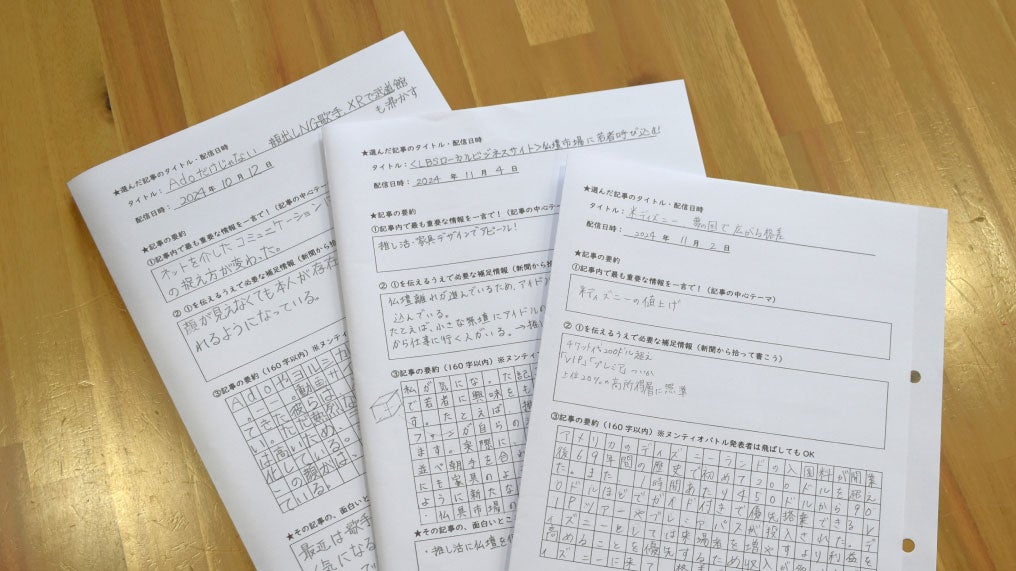 ★選んだ記事のタイトル・配信日時
タイトル：Adoだけじゃない 顔出しNG歌手、XRで武道館
も沸かす
配信日時：2024年10月12日
★記事の要約
①記事内で最も重要な情報を一言で！（記事の中心テーマ
ネットを介したコミュニケーション
の捉え方が変わった。
② ①を伝えるうえで必要な補足情報（新聞から拾
顔が見えなくても本人が存在
れるようになっている。
③記事の要約（160字以内）※ヌンティ
★その記事の、面白いと
最近は歌手
気になる
★選んだ記事のタイトル・配信日時
タイトル：＜LBSローカルビジネスサイト＞仏壇市場に若者呼び込む！
配信日時：2024年11月4日
★記事の要約
①記事内で最も重要な情報を一言で！（記事の中心テー
推し活・家具デザインでアピール！
② ①を伝えるうえで必要な補足情報（新聞
仏壇離れが進んでいるため、アイド
込んでいる。
たとえば、小さな祭壇にアイドルの
から仕事に行く人がいる。→推し
③記事の要約（160字以内）※ヌン
私が気になった記
で若者に興味をも
す。たとえば、推
ファンが自らの
ます。実際に、
並べ朝手を合わ
にも家具のよ
ように新たな
仏具市場の
★その記事の、面白いところ
・推し活に仏壇を
★選んだ記事のタイトル・配信日時
タイトル：米ディズニー 夢の国で広がる格差
配信日時：2024年11月2日
★記事の要約
①記事内で最も重要な情報を一言で！（記事の中心テーマ）
米ディズニーの値上げ
② ①を伝えるうえで必要な補足情報（新聞から拾って書こう）
チケット代200ドル超え
「VIP」「プレミア」ついか
上位20％の高所得層に照準
③記事の要約（160字以内）※ヌンティオバトル発表者は飛ばしてもOK
アメリカのディズニーランドの入園料が開業
後69年間の歴史で初めて200ドルを超え
た。また、1時間あたり450ドルから90
0ドルほどでガイド付きで優先搭乗できるV
IPツアーやプレミアパスが投入された。デ
ィズニーとしては来場者を増やすより利益を
高めることを優先するため収入が
ィズニーに来て